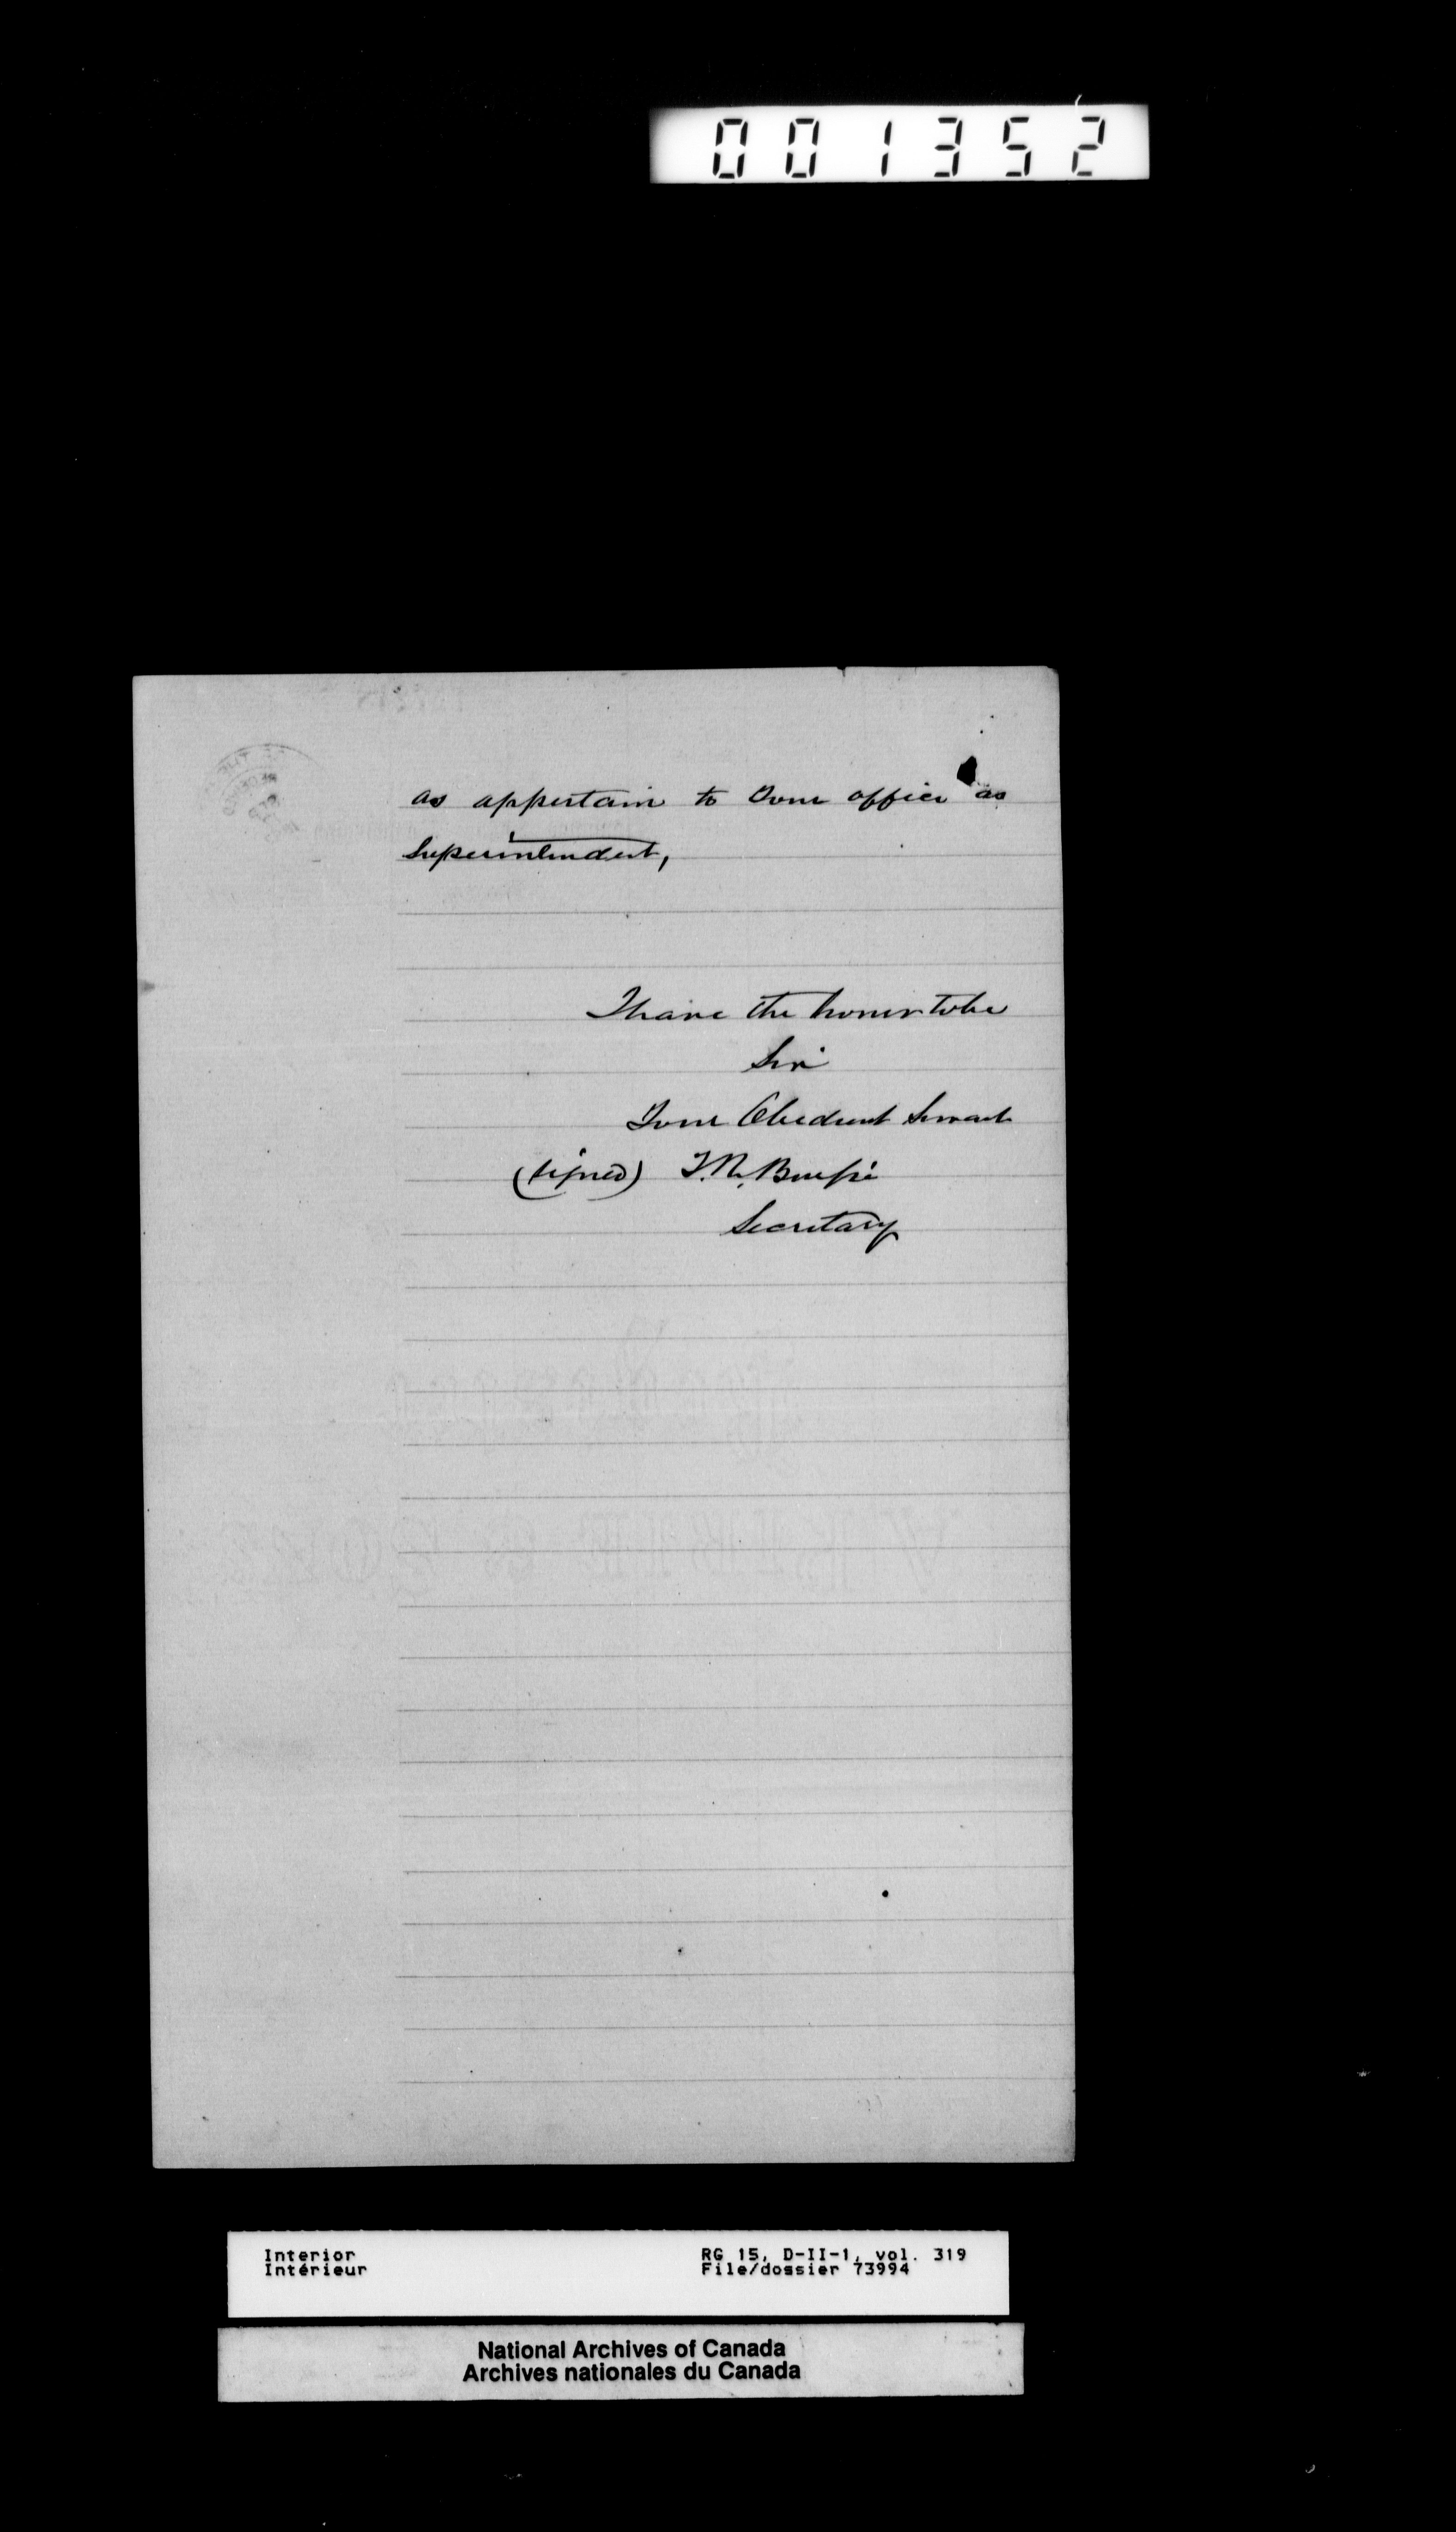 001352
as appertain to Your office as
Superintendent,
I have the honor to be
Sir
Your Obedient Servant
(signed) T. R. Burpé
Secretary
Interior
Intérieur
RG 15, D-II-1, vol. 319
File/dossier 73994
National Archives of Canada
Archives nationales du Canada